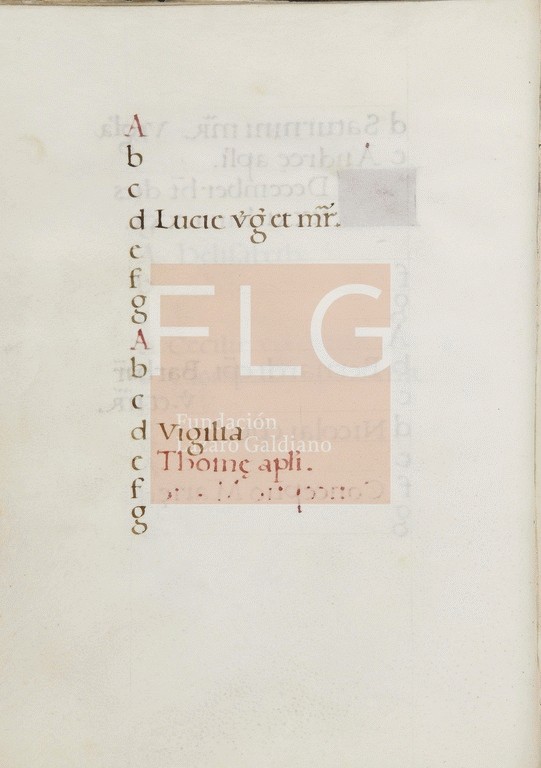 A
b
c
d Lucie vg̃ et mr̃.
e
f
g
A
b
c
d Vigilia
e Thomę apli.
f
g
FLG
Fundación
Lázaro Galdiano